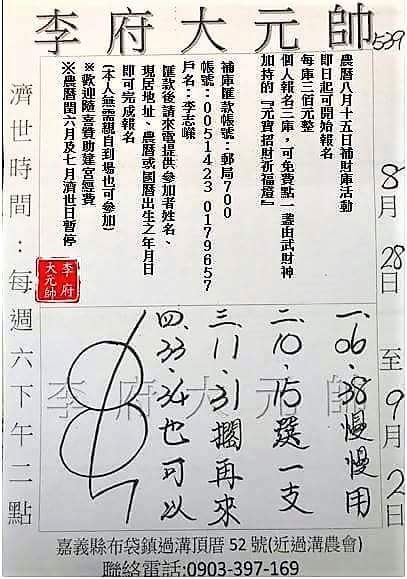 李府大元帥
539
農曆八月十五日補財庫活動
即日起可開始報名
每庫三佰元整
個人報名三庫，可免費點一盞由武財神
加持的『元寶招財祈福燈』
補庫匯款帳號：郵局700
帳號：0051423 0179657
戶名：李志嶸
匯款後請來電提供參加者姓名、
現居地址、農曆或國曆出生之年月日
即可完成報名
(本人無需親自到場也可參加)
※歡迎隨喜贊助建宮經費
※農曆閏六月及七月濟世日暫停
8月28日至9月2日
濟世時間：每週六下午二點
李府
大元帥
一、06、38慢慢用
二、10、15選一支
三、11、31擱再來
四、33、34也可以
李府大元帥
嘉義縣布袋鎮過溝頂厝 52 號(近過溝農會)
聯絡電話:0903-397-169